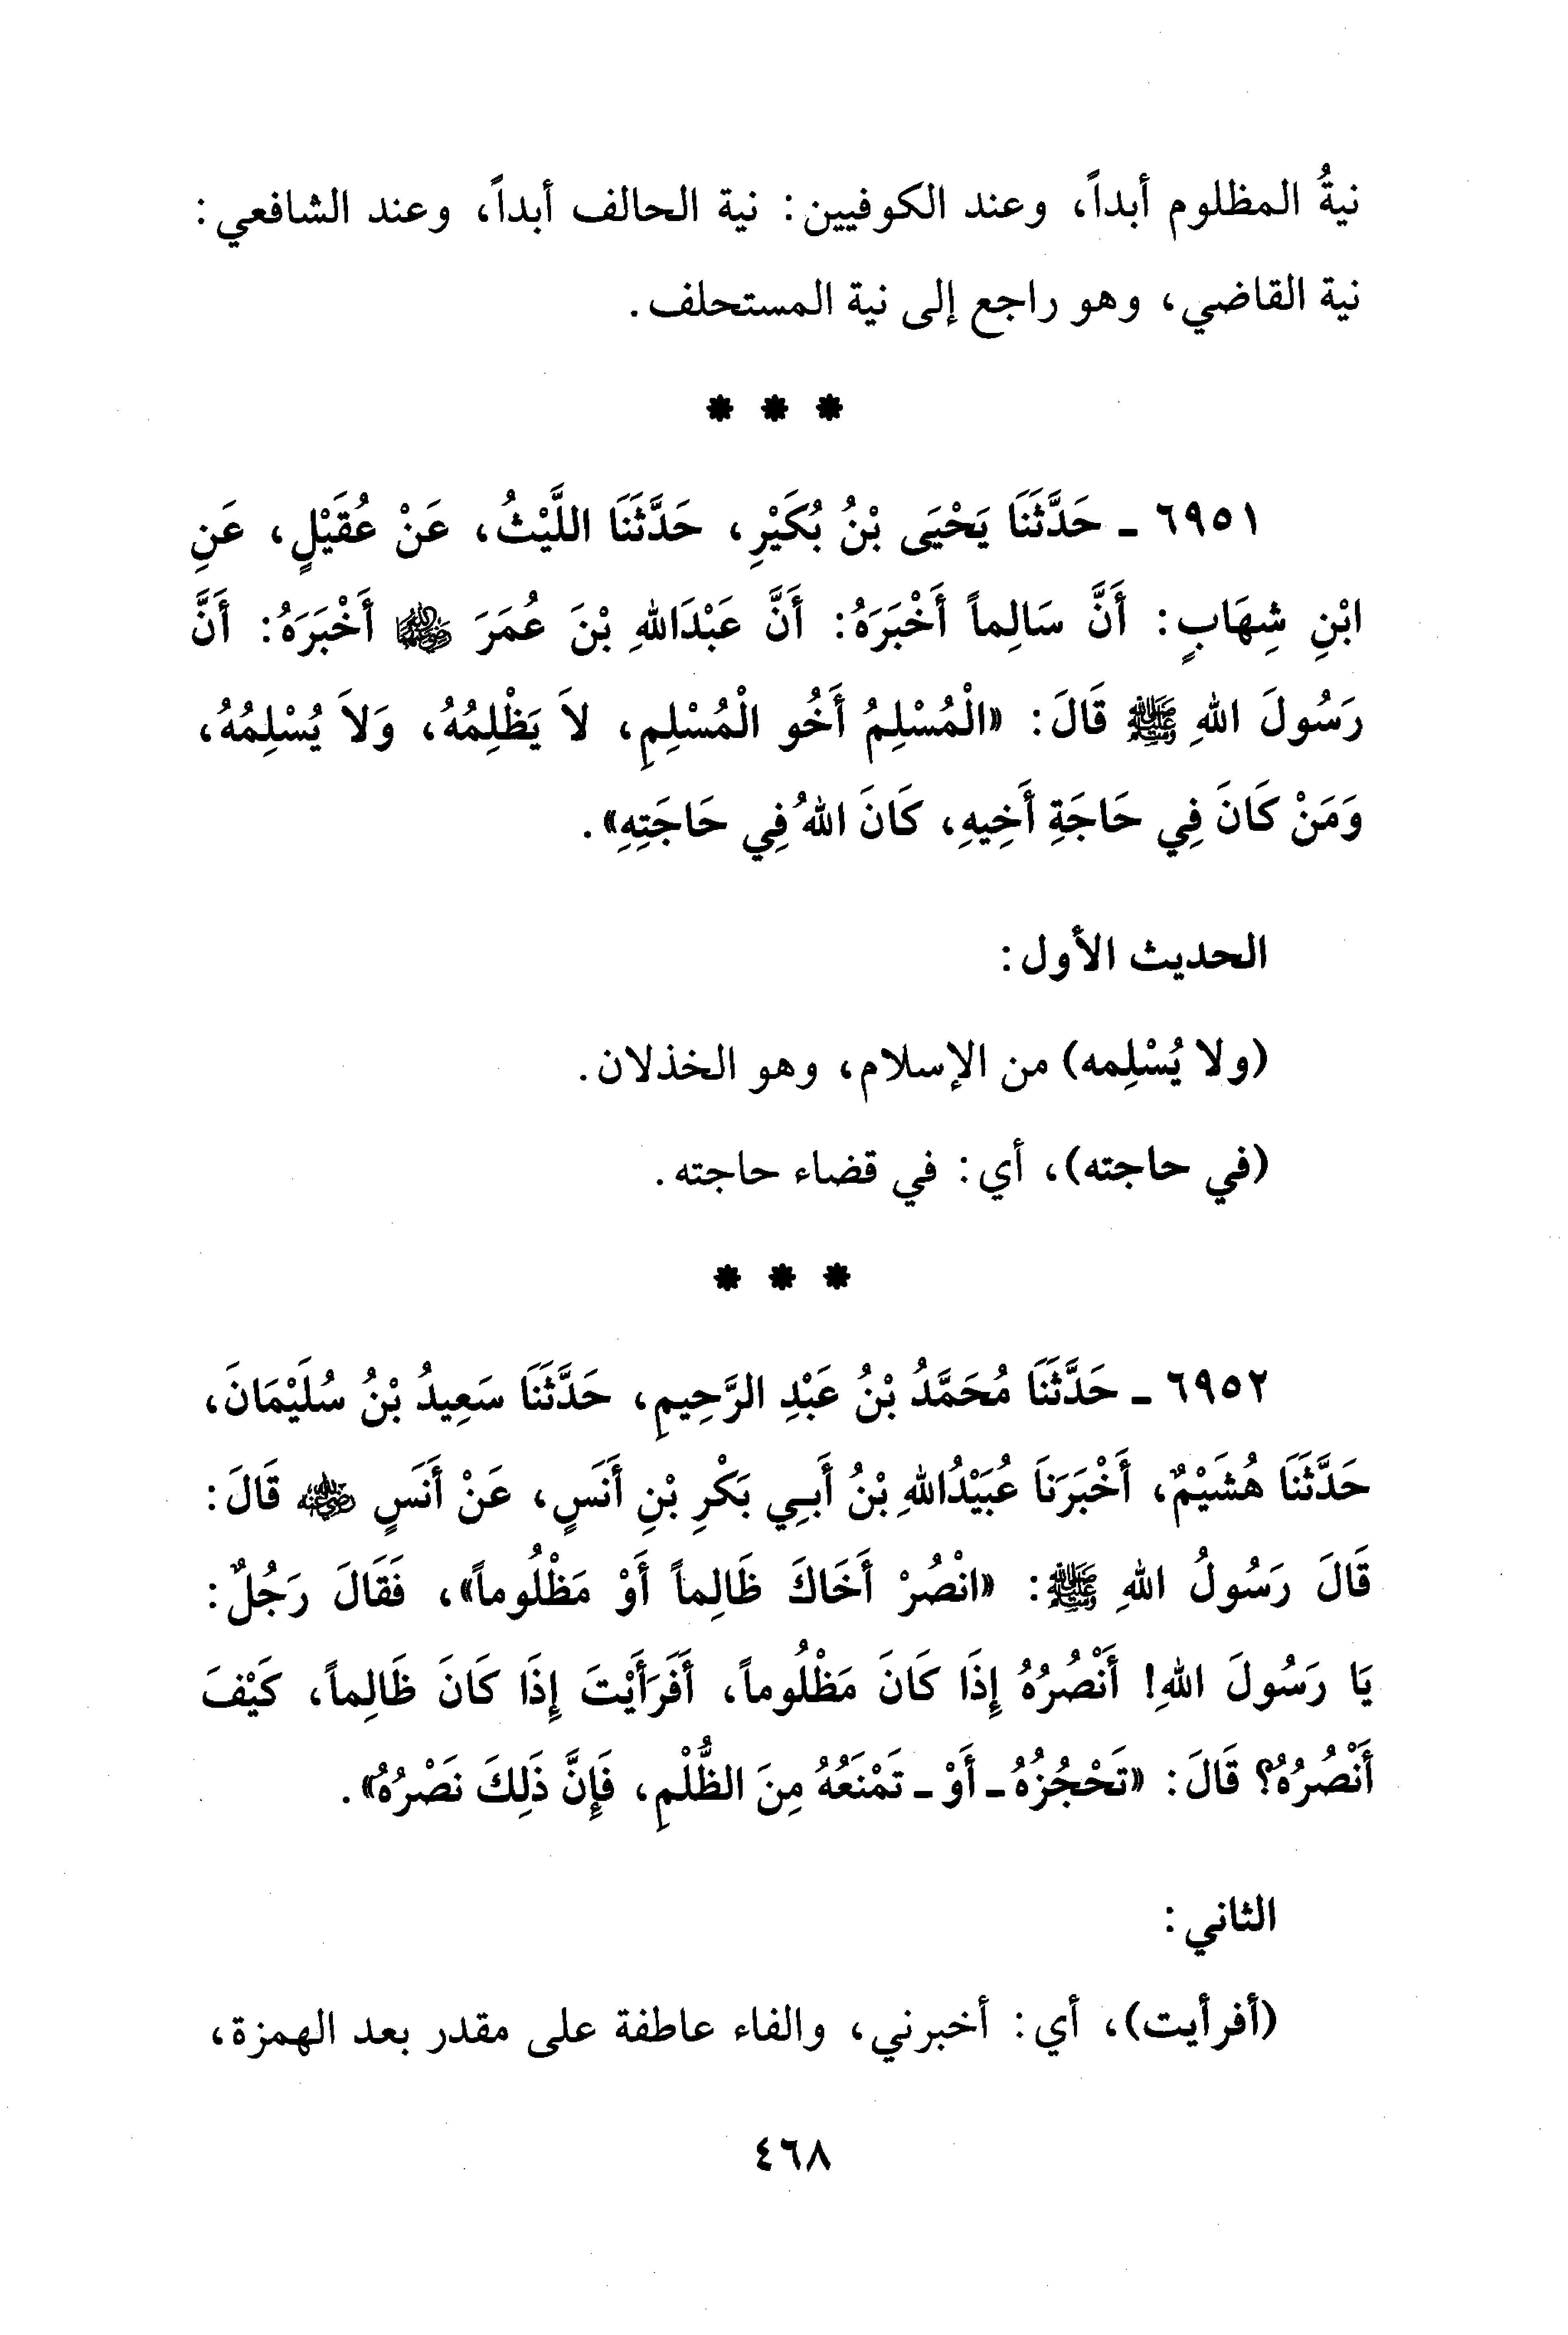 نيةُ المظلوم أبداً، وعند الكوفيين: نية الحالف أبداً، وعند الشافعي:
نية القاضي، وهو راجع إلى نية المستحلف.
* * *
٦٩٥١ - حَدَّثَنَا يَحْيَى بْنُ بُكَيْرِ، حَدَّثَنَا اللَّيْثُ، عَنْ عُقَيْلٍ، عَنِ
ابْنِ شِهَابٍ: أَنَّ سَالِماً أَخْبَرَهُ: أَنَّ عَبْدَاللهِ بْنَ عُمَرَ ﵄ أَخْبَرَهُ: أَنَّ
رَسُولَ اللهِ ﷺ قَالَ: «الْمُسْلِمُ أَخُو الْمُسْلِمِ، لاَ يَظْلِمُهُ، وَلاَ يُسْلِمُهُ،
وَمَنْ كَانَ فِي حَاجَةِ أَخِيهِ، كَانَ اللهُ فِي حَاجَتِهِ».
الحديث الأول:
(ولا يُسْلِمه) من الإسلام، وهو الخذلان.
(في حاجته)، أي: في قضاء حاجته.
* * *
٦٩٥٢ - حَدَّثَنَا مُحَمَّدُ بْنُ عَبْدِ الرَّحِيمِ، حَدَّثَنَا سَعِيدُ بْنُ سُلَيْمَانَ،
حَدَّثَنَا هُشَيْمٌ، أَخْبَرَنَا عُبَيْدُاللهِ بْنُ أَبِي بَكْرِ بْنِ أَنَسٍ، عَنْ أَنَسٍ ﵁ قَالَ:
قَالَ رَسُولُ اللهِ ﷺ: «انْصُرْ أَخَاكَ ظَالِماً أَوْ مَظْلُوماً»، فَقَالَ رَجُلٌ:
يَا رَسُولَ اللهِ! أَنْصُرُهُ إِذَا كَانَ مَظْلُوماً، أَفَرَأَيْتَ إِذَا كَانَ ظَالِماً، كَيْفَ
أَنْصُرُهُ؟ قَالَ: «تَحْجُزُهُ - أَوْ - تَمْنَعُهُ مِنَ الظُّلْمِ، فَإِنَّ ذَلِكَ نَصْرُهُ».
الثاني:
(أفرأيت)، أي: أخبرني، والفاء عاطفة على مقدر بعد الهمزة،
٤٦٨